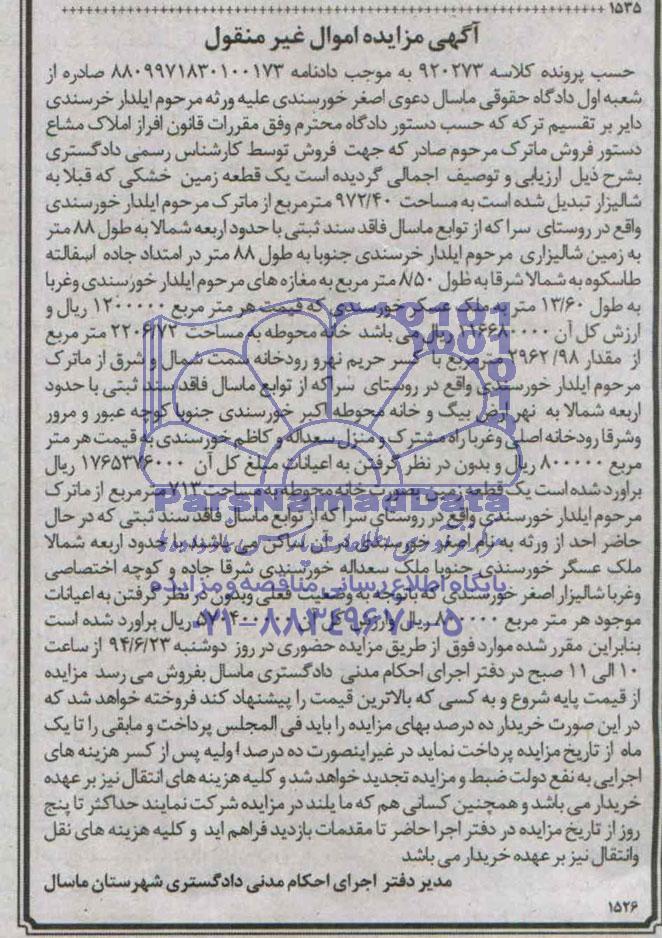 ۱۵۳۵
آگهی مزایده اموال غیر منقول
حسب پرونده کلاسه ۹۲۰۲۷۳ به موجب دادنامه ۸۸۰۹۹۷۱۸۳۰۱۰۰۱۷۳ صادره از
شعبه اول دادگاه حقوقی ماسال دعوی اصغر خورسندی علیه ورثه مرحوم ایلدار خرسندی
دایر بر تقسیم ترکه که حسب دستور دادگاه محترم وفق مقررات قانون افراز املاک مشاع
دستور فروش ماترک مرحوم صادر که جهت فروش توسط کارشناس رسمی دادگستری
بشرح ذیل ارزیابی و توصیف اجمالی گردیده است یک قطعه زمین خشکی که قبلا به
شالیزار تبدیل شده است به مساحت ۹۷۲/۴۰ مترمربع از ماترک مرحوم ایلدار خورسندی
واقع در روستای سرا که از توابع ماسال فاقد سند ثبتی با حدود اربعه شمالا به طول ۸۸ متر
به زمین شالیزاری مرحوم ایلدار خرسندی جنوبا به طول ۸۸ متر در امتداد جاده اسفالته
طاسکوه به شمالا شرقا به طول ۸/۵۰ متر مربع به مغازه های مرحوم ایلدار خورسندی وغربا
به طول ۱۳/۶۰ متر به ملک عسکر خورسندی که قیمت هر متر مربع ۱۲۰۰۰۰۰ ریال و
ارزش کل آن ۱۱۶۶۸۰۰۰۰ ریال می باشد خانه محوطه به مساحت ۲۲۰۶/۷۲ متر مربع
از مقدار ۲۹۶۲/۹۸ مترمربع با کسر حریم نهرو رودخانه سمت شمال و شرق از ماترک
مرحوم ایلدار خورسندی واقع در روستای سراکه از توابع ماسال فاقد سند ثبتی با حدود
اربعه شمالا به نهر ارض بیگ و خانه محوطه اکبر خورسندی جنوبا کوچه عبور و مرور
وشرقا رودخانه اصلی وغربا راه مشترک و منزل سعداله و کاظم خورسندی به قیمت هر متر
مربع ۸۰۰۰۰۰ ریال و بدون در نظر گرفتن به اعیانات مبلغ کل آن ۱۷۶۵۳۷۶۰۰۰ ریال
براورد شده است یک قطعه زمین بصورت خانه محوطه به مساحت ۷۱۳ مترمربع از ماترک
مرحوم ایلدار خورسندی واقع در روستای سرا که از توابع ماسال فاقد سند ثبتی که در حال
حاضر احد از ورثه به نام اصغر خورسندی در آن ساکن می باشند با حدود اربعه شمالا
ملک عسگر خورسندی جنوبا ملک سعداله خورسندی شرقا جاده و کوچه اختصاصی
وغربا شالیزار اصغر خورسندی که باتوجه به وضعیت فعلی وبدون در نظر گرفتن به اعیانات
موجود هر متر مربع ریال وارزش کل آن ریال براورد شده است
بنابراین مقرر شده موارد فوق از طریق مزایده حضوری در روز دوشنبه ۹۴/۶/۲۳ از ساعت
۱۰ الی ۱۱ صبح در دفتر اجرای احکام مدنی دادگستری ماسال بفروش می رسد مزایده
از قیمت پایه شروع و به کسی که بالاترین قیمت را پیشنهاد کند فروخته خواهد شد که
در این صورت خریدار ده درصد بهای مزایده را باید فی المجلس پرداخت و مابقی را تا یک
ماه از تاریخ مزایده پرداخت نماید در غیراینصورت ده درصد اولیه پس از کسر هزینه های
اجرایی به نفع دولت ضبط و مزایده تجدید خواهد شد و کلیه هزینه های انتقال نیز بر عهده
خریدار می باشد و همچنین کسانی هم که ما یلند در مزایده شرکت نمایند حداکثر تا پنج
روز از تاریخ مزایده در دفتر اجرا حاضر تا مقدمات بازدید فراهم اید و کلیه هزینه های نقل
وانتقال نیز بر عهده خریدار می باشد
مدیر دفتر اجرای احکام مدنی دادگستری شهرستان ماسال
۱۵۲۶
ParsNamadData
پایگاه اطلاع رسانی مناقصه و مزایده
۰۲۱-۸۸۳۴۹۶۷۰-۵